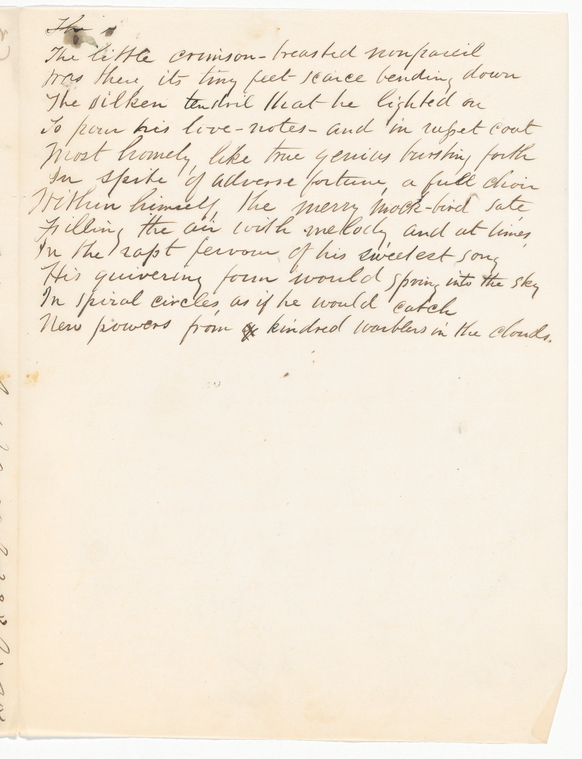 The
The little crimson-breasted nonpareil
Was there its tiny feet scarce bending down
The silken tendril that he lighted on
To pour his love-notes - and in russet coat
Most homely, like true genius bursting forth
In spite of adverse fortune, a full choir
Within himself, the merry mock-bird sate,
Filling the air with melody and at times,
In the rapt fervour of his sweetest song
His quivering form would spring into the sky
In spiral circles, as if he would catch
New powers from kindred warblers in the clouds.